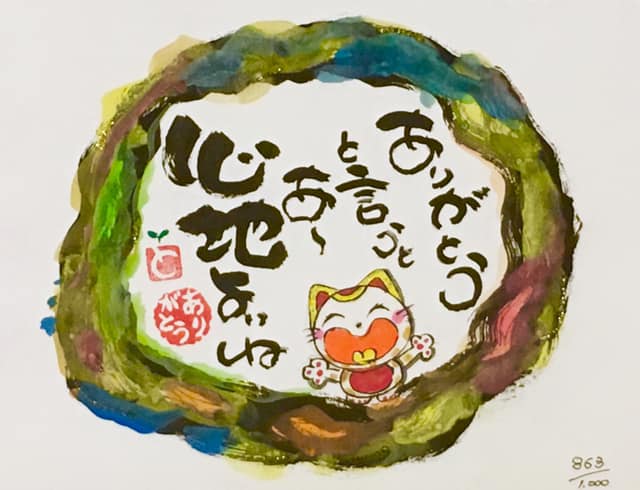 ありがとう
と言うと
あ～
心地よいね
と
ありがとう
863
1.000